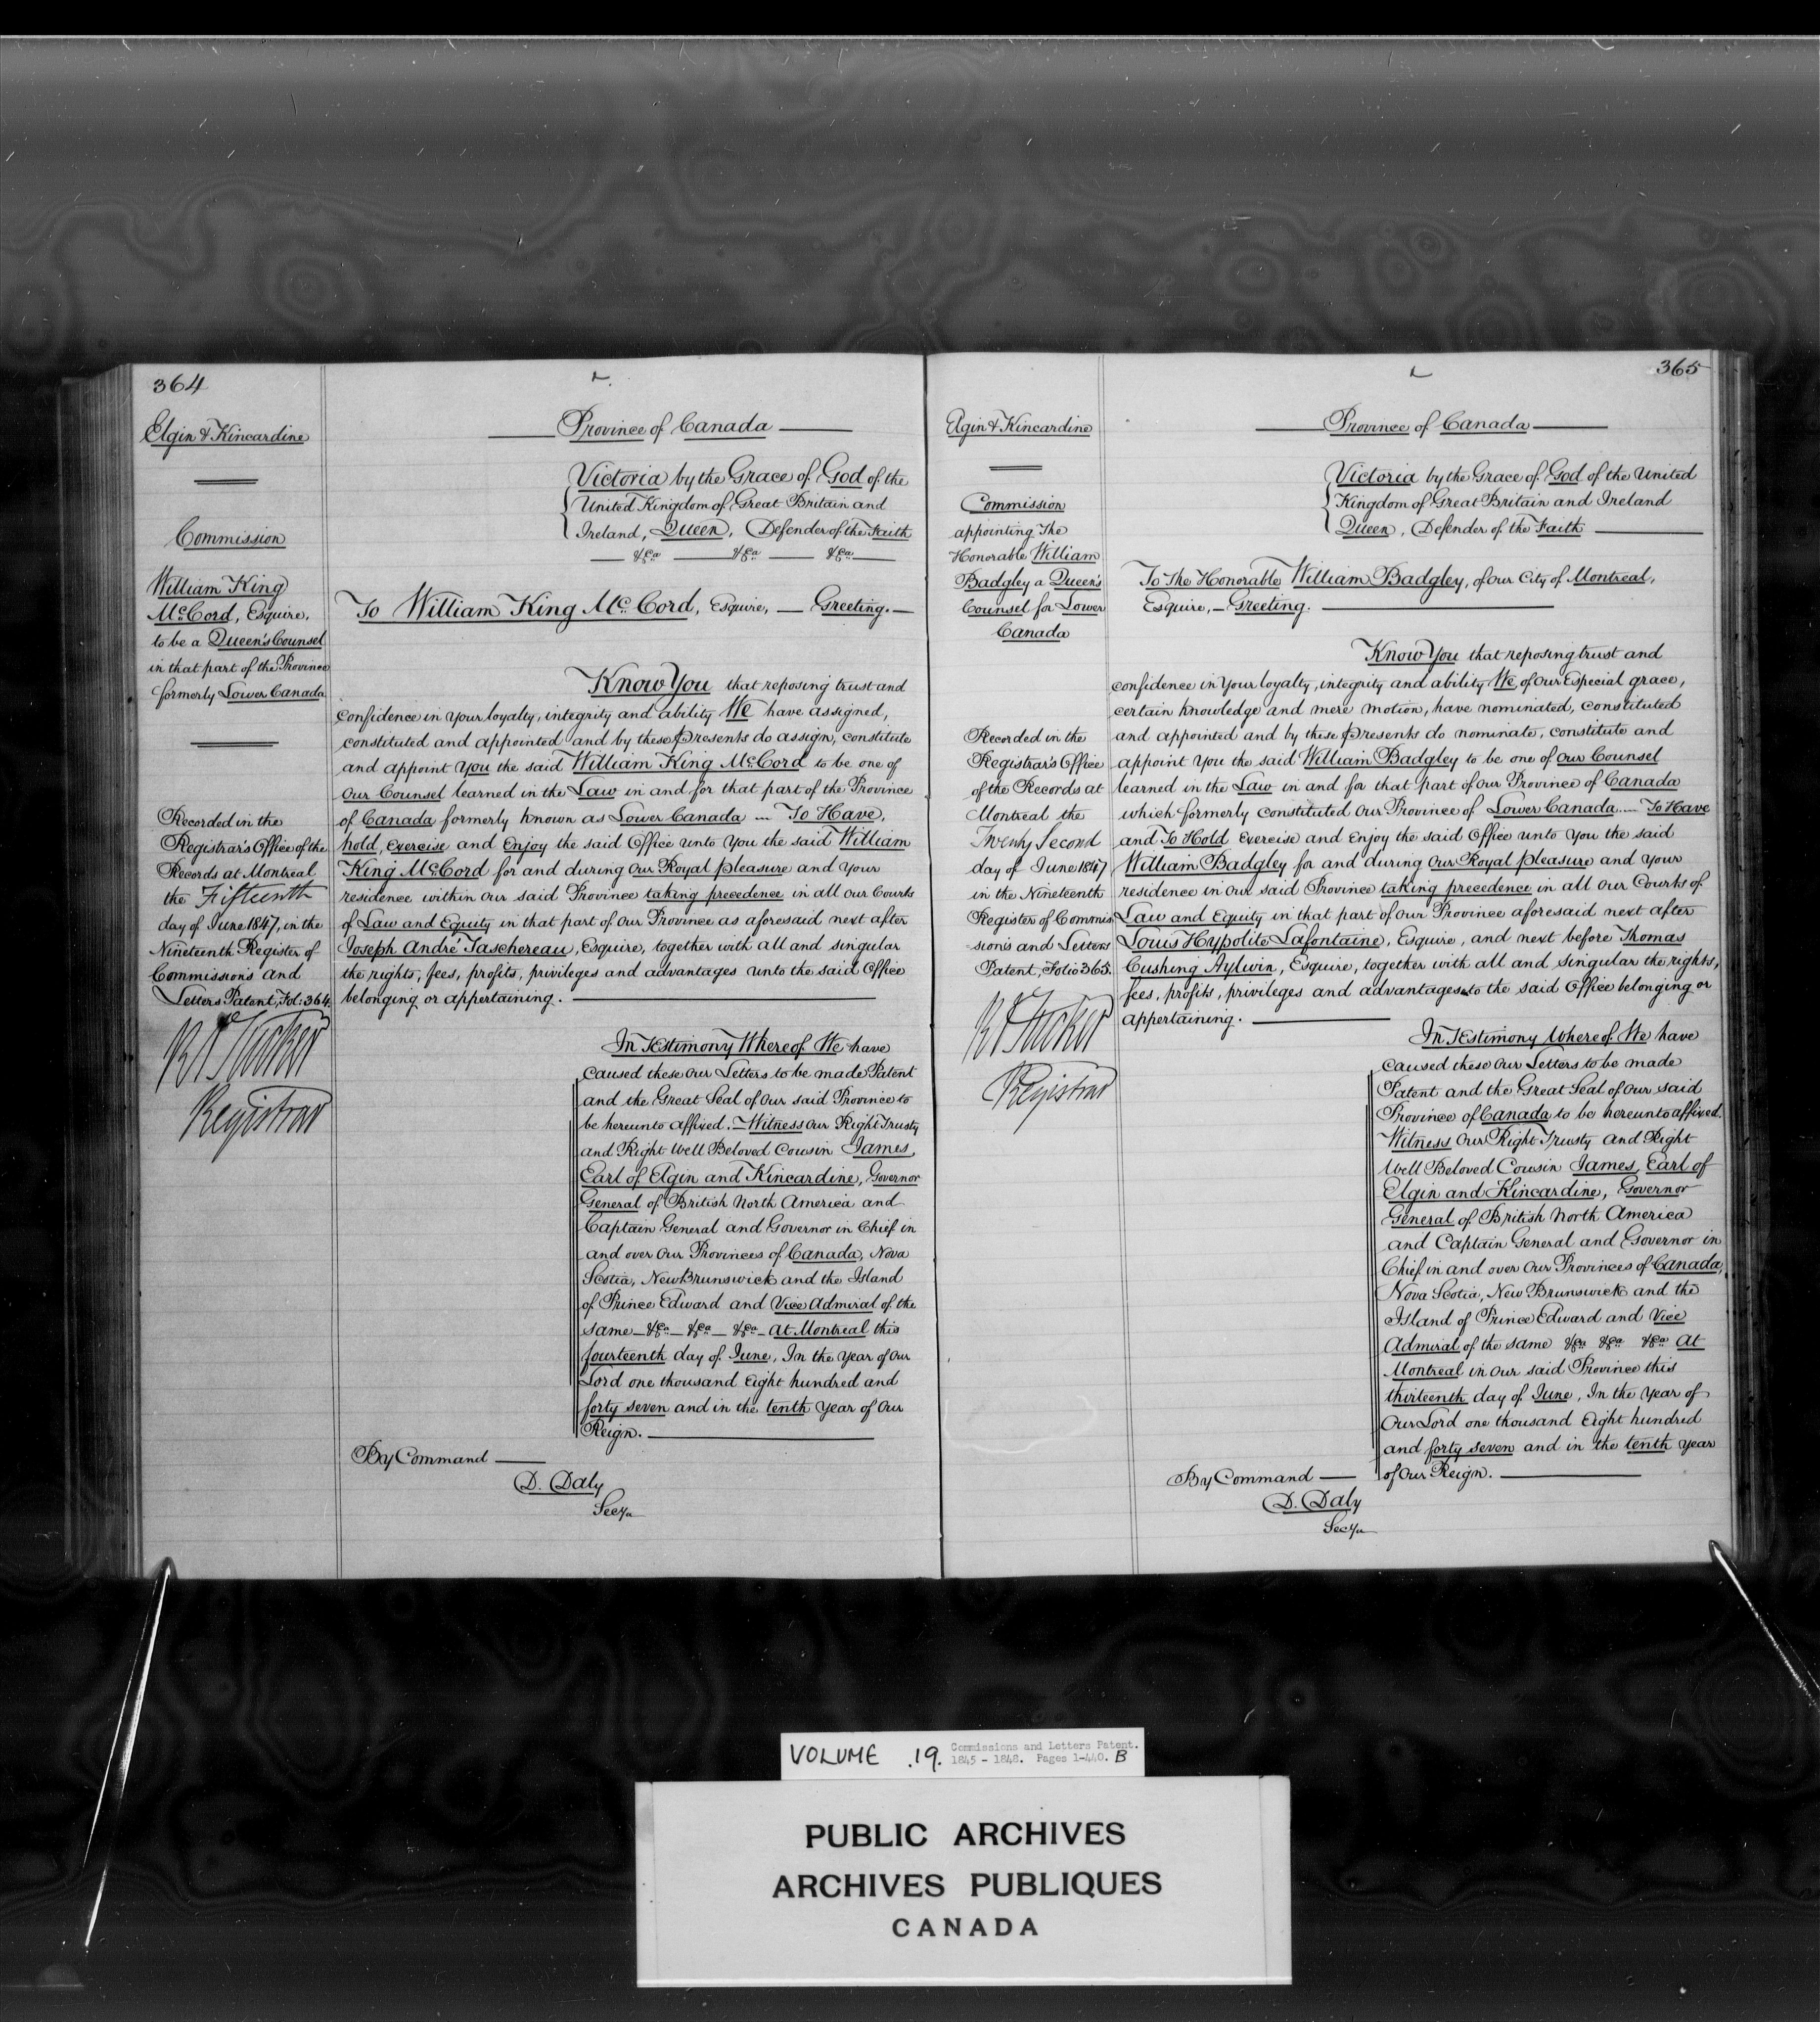 364
Elgin & Kincardine
Commission
William King
McCord, Esquire,
to be a Queen's Counsel
in that part of the Province
formerly Lower Canada
Recorded in the
Registrar's Office of the
Records at Montreal
the Fifteenth
day of June 1847, in the
Nineteenth Register of
Commissions and
Letters Patent, Fol: 364.
R A Tucker
Registrar
Province of Canada
Victoria by the Grace of God of the
United Kingdom of Great Britain and
Ireland, Queen, Defender of the Faith
&ca &ca &ca
To William King McCord, Esquire, — Greeting. —
Know You that reposing trust and
confidence in your loyalty, integrity and ability We have assigned,
constituted and appointed and by these Presents do assign, constitute
and appoint You the said William King McCord to be one of
Our Counsel learned in the Law in and for that part of the Province
of Canada formerly known as Lower Canada — To Have,
hold, exercise and Enjoy the said Office unto You the said William
King McCord for and during Our Royal pleasure and Your
residence within Our said Province taking precedence in all Our Courts
of Law and Equity in that part of Our Province as aforesaid next after
Joseph André Taschereau, Esquire, together with all and singular
the rights, fees, profits, privileges and advantages unto the said Office
belonging or appertaining.
In Testimony Whereof We have
caused these Our Letters to be made Patent
and the Great Seal of Our said Province to
be hereunto affixed. — Witness Our Right Trusty
and Right Well Beloved Cousin James,
Earl of Elgin and Kincardine, Governor
General of British North America and
Captain General and Governor in Chief in
and over Our Provinces of Canada, Nova
Scotia, New Brunswick and the Island
of Prince Edward and Vice Admiral of the
same — &ca — &ca — &ca — At Montreal this
fourteenth day of June, In the Year of Our
Lord one thousand Eight hundred and
forty seven and in the tenth Year of Our
Reign.
By Command
D. Daly
Secy
365
Elgin & Kincardine
Commission
appointing The
Honorable William
Badgley a Queen's
Counsel for Lower
Canada
Recorded in the
Registrar's Office
of the Records at
Montreal the
Twenty Second
day of June 1847
in the Nineteenth
Register of Commis
sions and Letters
Patent, Folio 365.
R A Tucker
Registrar
Province of Canada
Victoria by the Grace of God of the United
Kingdom of Great Britain and Ireland
Queen, Defender of the Faith
To The Honorable William Badgley, of Our City of Montreal,
Esquire, — Greeting.
Know You that reposing trust and
confidence in Your loyalty, integrity and ability We of Our Especial grace,
certain knowledge and mere motion, have nominated, constituted
and appointed and by these Presents do nominate, constitute and
appoint You the said William Badgley to be one of Our Counsel
learned in the Law in and for that part of Our Province of Canada
which formerly constituted Our Province of Lower Canada — To Have
and To Hold exercise and Enjoy the said Office unto You the said
William Badgley for and during Our Royal pleasure and Your
residence in Our said Province taking precedence in all Our Courts of
Law and Equity in that part of Our Province aforesaid next after
Louis Hypolite Lafontaine, Esquire, and next before Thomas
Cushing Aylwin, Esquire, together with all and singular the rights,
fees, profits, privileges and advantages to the said Office belonging or
appertaining.
In Testimony Whereof We have
caused these Our Letters to be made
Patent and the Great Seal of Our said
Province of Canada to be hereunto affixed.
Witness Our Right Trusty and Right
Well Beloved Cousin James, Earl of
Elgin and Kincardine, Governor
General of British North America
and Captain General and Governor in
Chief in and over Our Provinces of Canada,
Nova Scotia, New Brunswick and the
Island of Prince Edward and Vice
Admiral of the same &ca &ca &ca At
Montreal in Our said Province this
thirteenth day of June, In the Year of
Our Lord one thousand Eight hundred
and forty seven and in the tenth Year
of Our Reign.
By Command
D. Daly
Secy
VOLUME .19. Commissions and Letters Patent.
1845 - 1848. Pages 1-440. B
PUBLIC ARCHIVES
ARCHIVES PUBLIQUES
CANADA